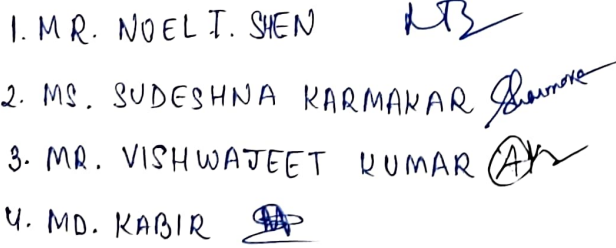 1. MR. NOEL I. SHEN
2. MS. SUDESHNA KARMAKAR
3. MR. VISHWAJEET KUMAR
4. MD. KABIR